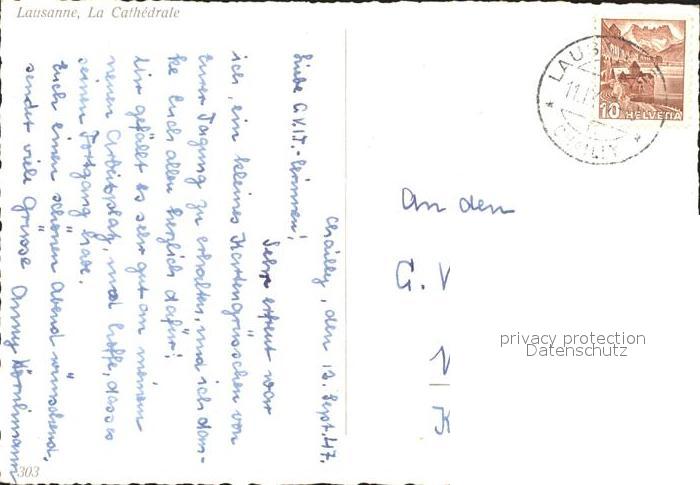 Lausanne, La Cathédrale
Chailly, den 12. Sept. 47.
Liebe G.V.I.-lerinnen!
Sehr erfreut war
ich, ein kleines Kartengrüsschen von
Eurer Tagung zu erhalten, und ich dan-
ke Euch allen herzlich dafür!
Mir gefällt es sehr gut an meinem
neuen Arbeitsplatz, und hoffe, dass es
seinen Fortgang habe.
Euch einen schönen Abend wünschend,
sendet viele Grüsse Anny
303
LAUS
CHAILLY
10 HELVETIA
An den
G. V
V
K
privacy protection
Datenschutz